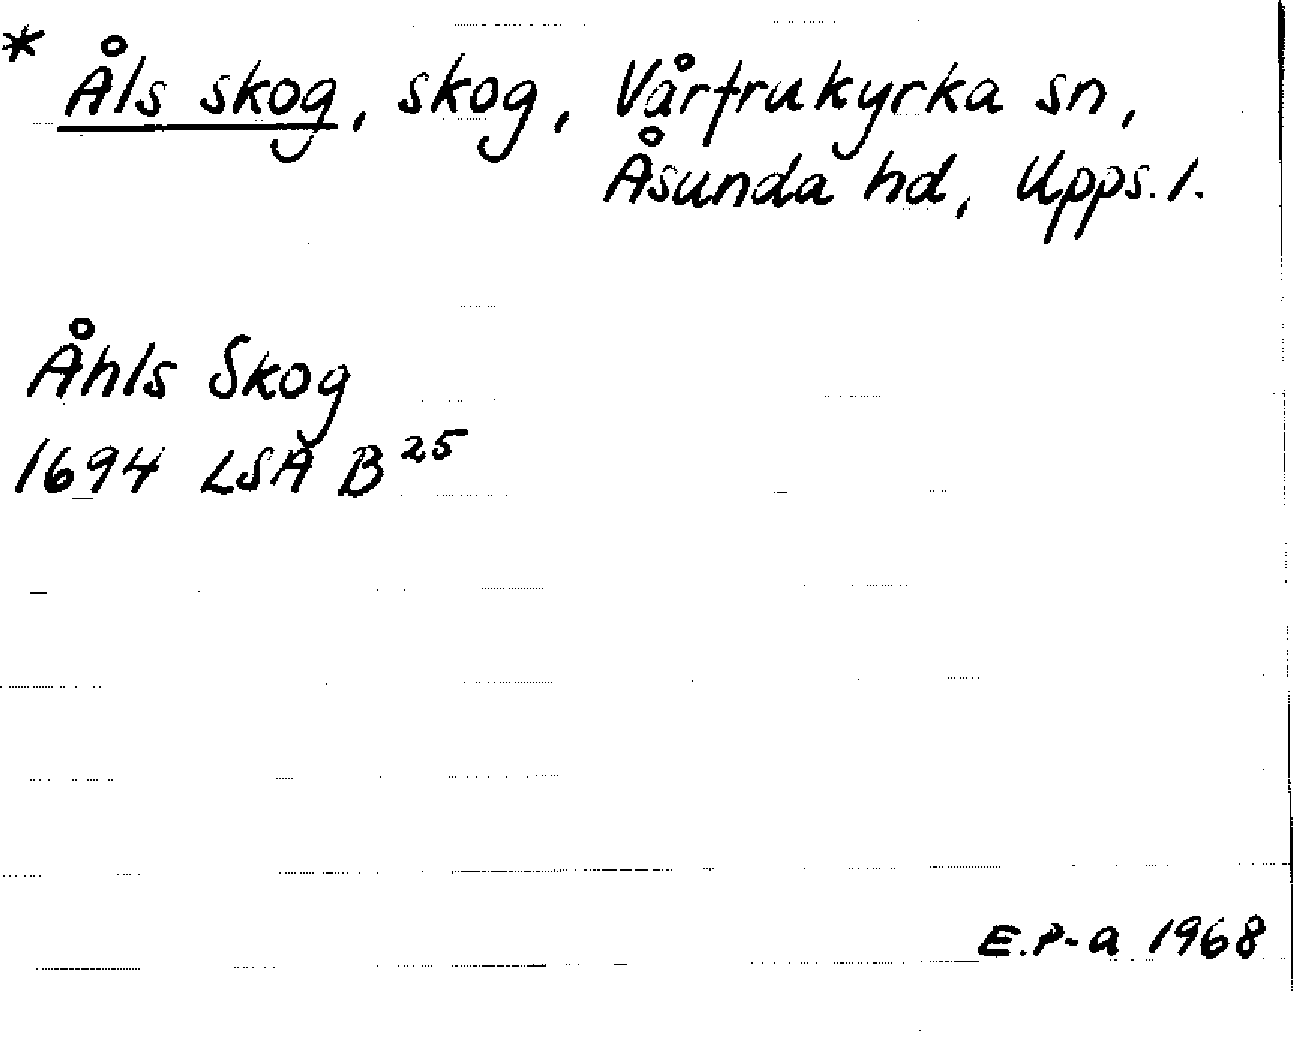 * Åls skog, skog, Vårfrukyrka sn,
Åsunda hd, Upps. l.
Åhls Skog
1694 LSA B 25
E.P-a 1968